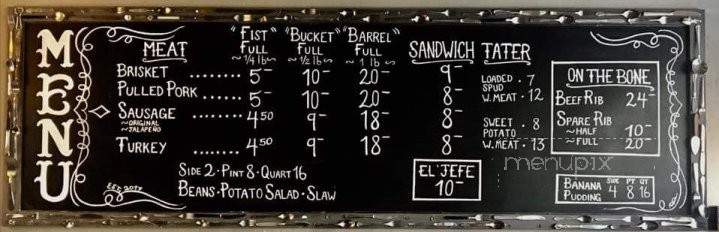 MENU
MEAT "FIST" FULL ~ 1/4 lb ~ "BUCKET" FULL ~ 1/2 lb ~ "BARREL" FULL ~ 1 lb ~ SANDWICH
BRISKET ....... 5- 10- 20- 9-
PULLED PORK ..... 5- 10- 20- 8-
SAUSAGE ....... 4.50 9- 18- 8-
~ORIGINAL
~JALAPEÑO
TURKEY ....... 4.50 9- 18- 8-
SIDE 2 · PINT 8 · QUART 16
BEANS · POTATO SALAD · SLAW
EST. 2017
EL JEFE
10-
TATER
LOADED SPUD · 7
W. MEAT · 12
SWEET POTATO · 8
W. MEAT · 13
ON THE BONE
BEEF RIB 24-
SPARE RIB
~HALF 10-
~FULL 20-
menupix
BANANA PUDDING SIDE 4 PT 8 QT 16